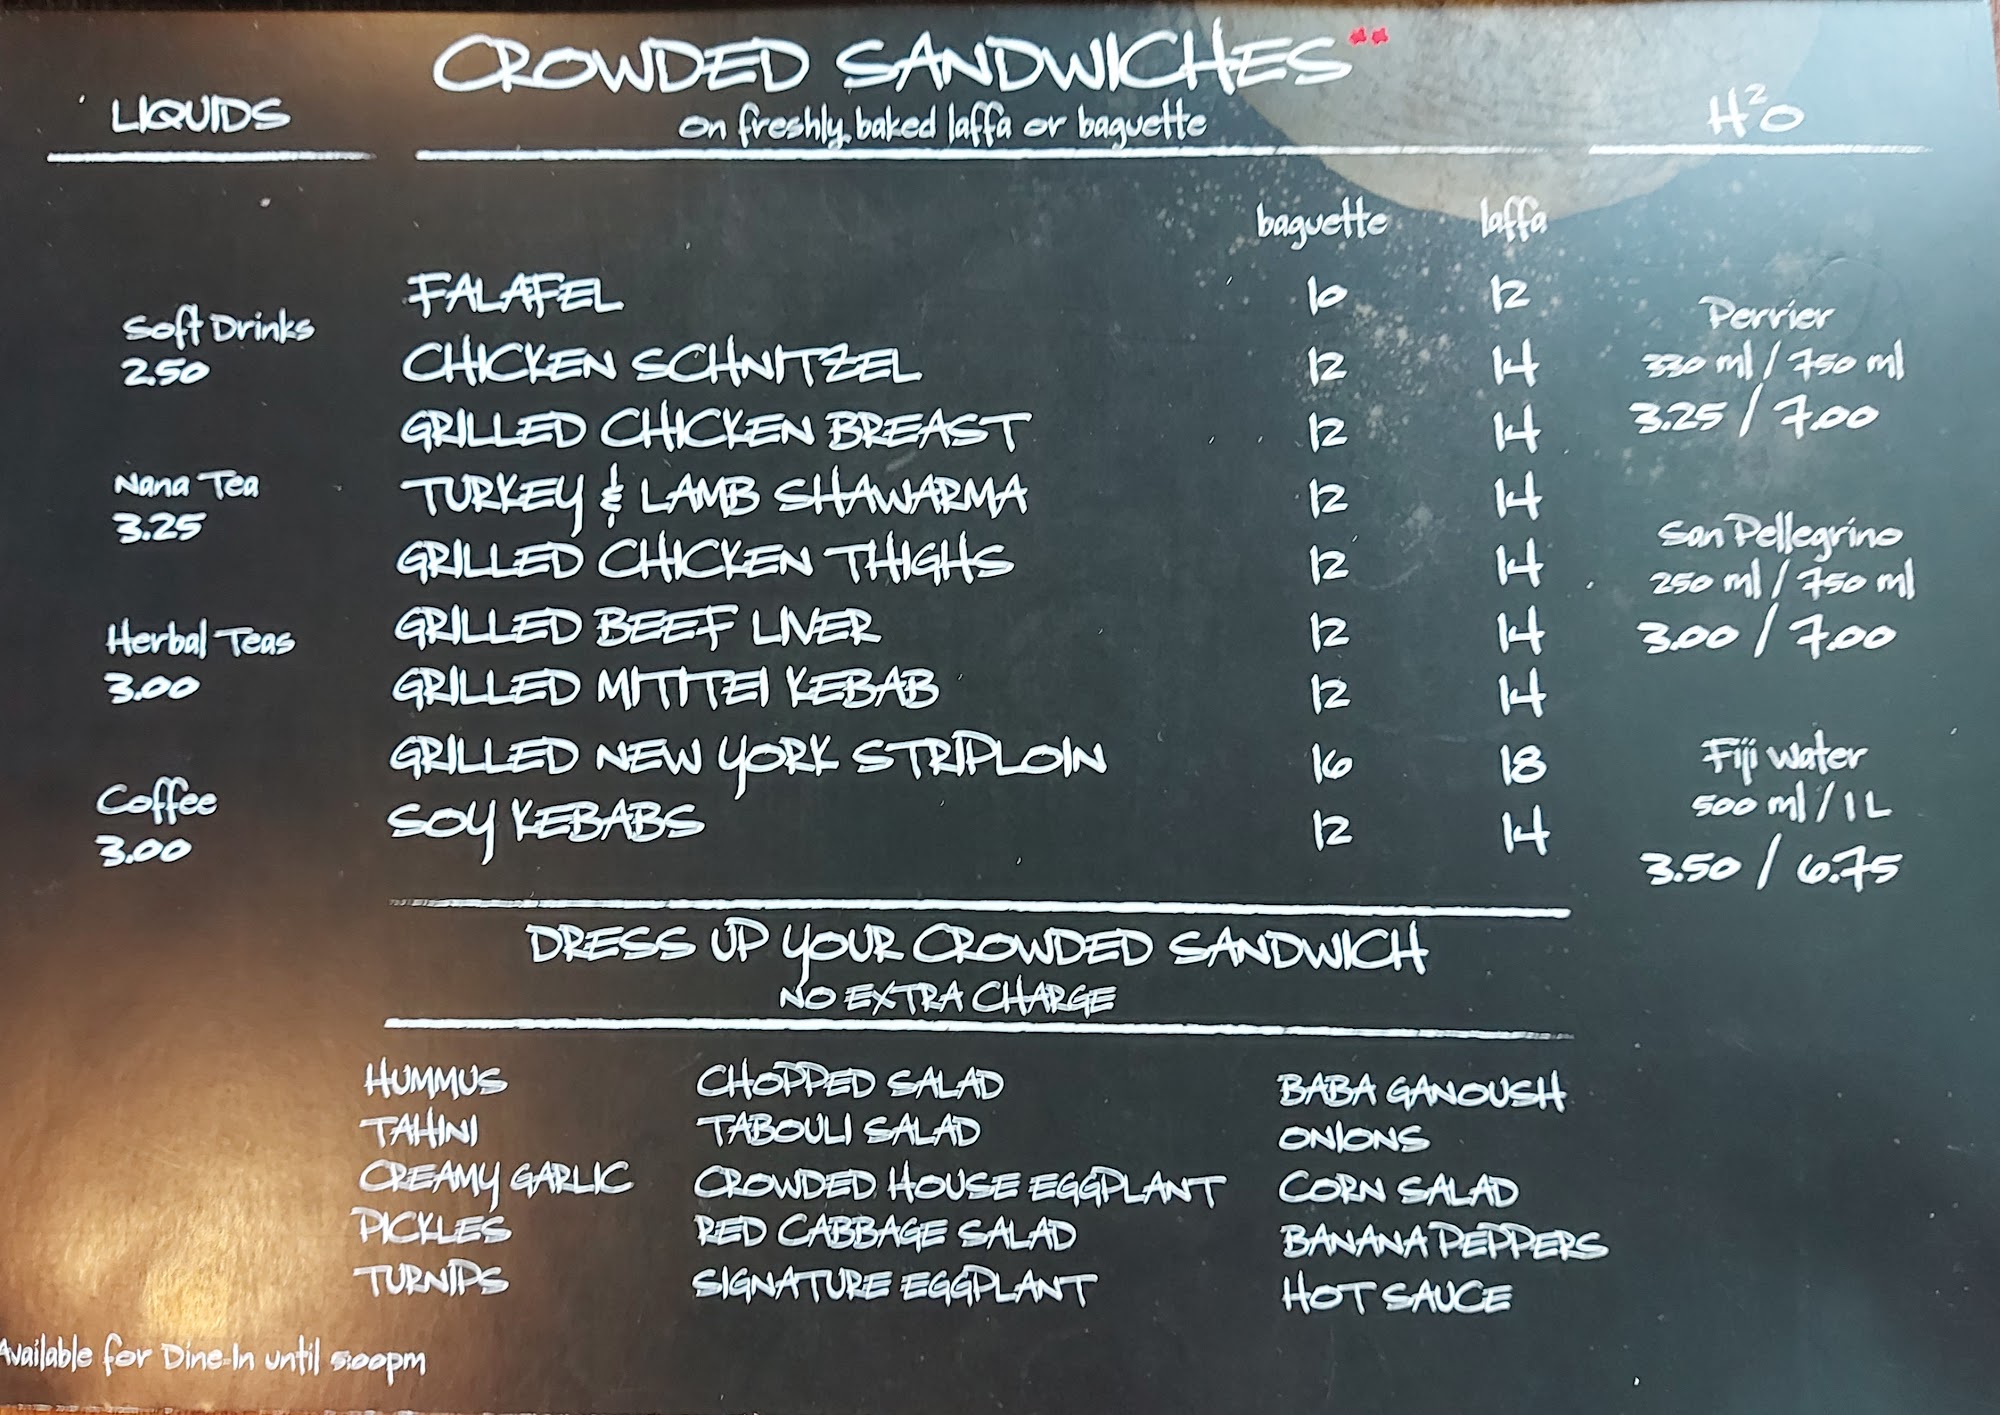 LIQUIDS
Soft Drinks
2.50
Nana Tea
3.25
Herbal Teas
3.00
Coffee
3.00
CROWDED SANDWICHES**
on freshly baked laffa or baguette
baguette laffa
FALAFEL 10 12
CHICKEN SCHNITZEL 12 14
GRILLED CHICKEN BREAST 12 14
TURKEY & LAMB SHAWARMA 12 14
GRILLED CHICKEN THIGHS 12 14
GRILLED BEEF LIVER 12 14
GRILLED MITITEI KEBAB 12 14
GRILLED NEW YORK STRIPLOIN 16 18
SOY KEBABS 12 14
H²O
Perrier
330 ml / 750 ml
3.25 / 7.00
San Pellegrino
250 ml / 750 ml
3.00 / 7.00
Fiji Water
500 ml / 1 L
3.50 / 6.75
DRESS UP YOUR CROWDED SANDWICH
NO EXTRA CHARGE
HUMMUS CHOPPED SALAD BABA GANOUSH
TAHINI TABOULI SALAD ONIONS
CREAMY GARLIC CROWDED HOUSE EGGPLANT CORN SALAD
PICKLES RED CABBAGE SALAD BANANA PEPPERS
TURNIPS SIGNATURE EGGPLANT HOT SAUCE
Available for Dine-In until 5:00pm